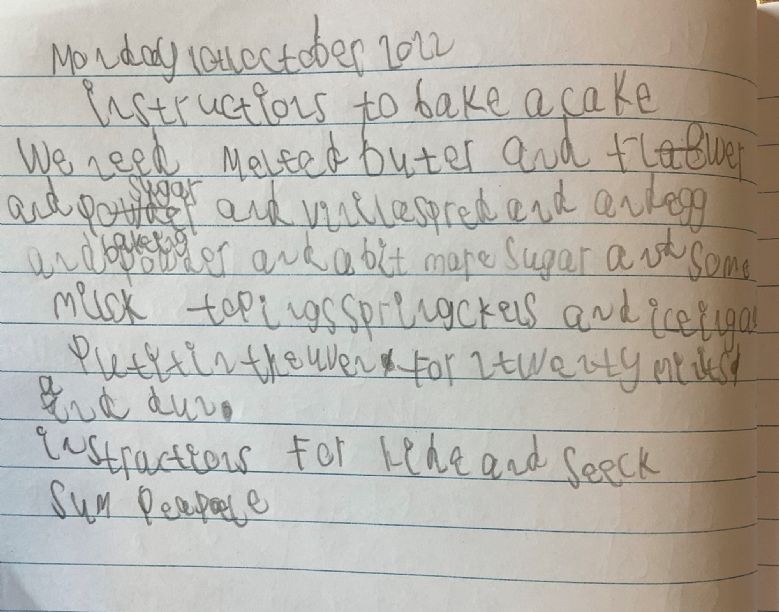 Monday 10th october 2022
instructions to bake a cake
We need Melted buter and flower
and sugar and vnillaspred and andegg
and bakeing powder and a bit more sugar and some
milck topings springckels and iceing
Putitintheuven for twenty minits
and dun.
instractions for hide and seeck
sum Peapole